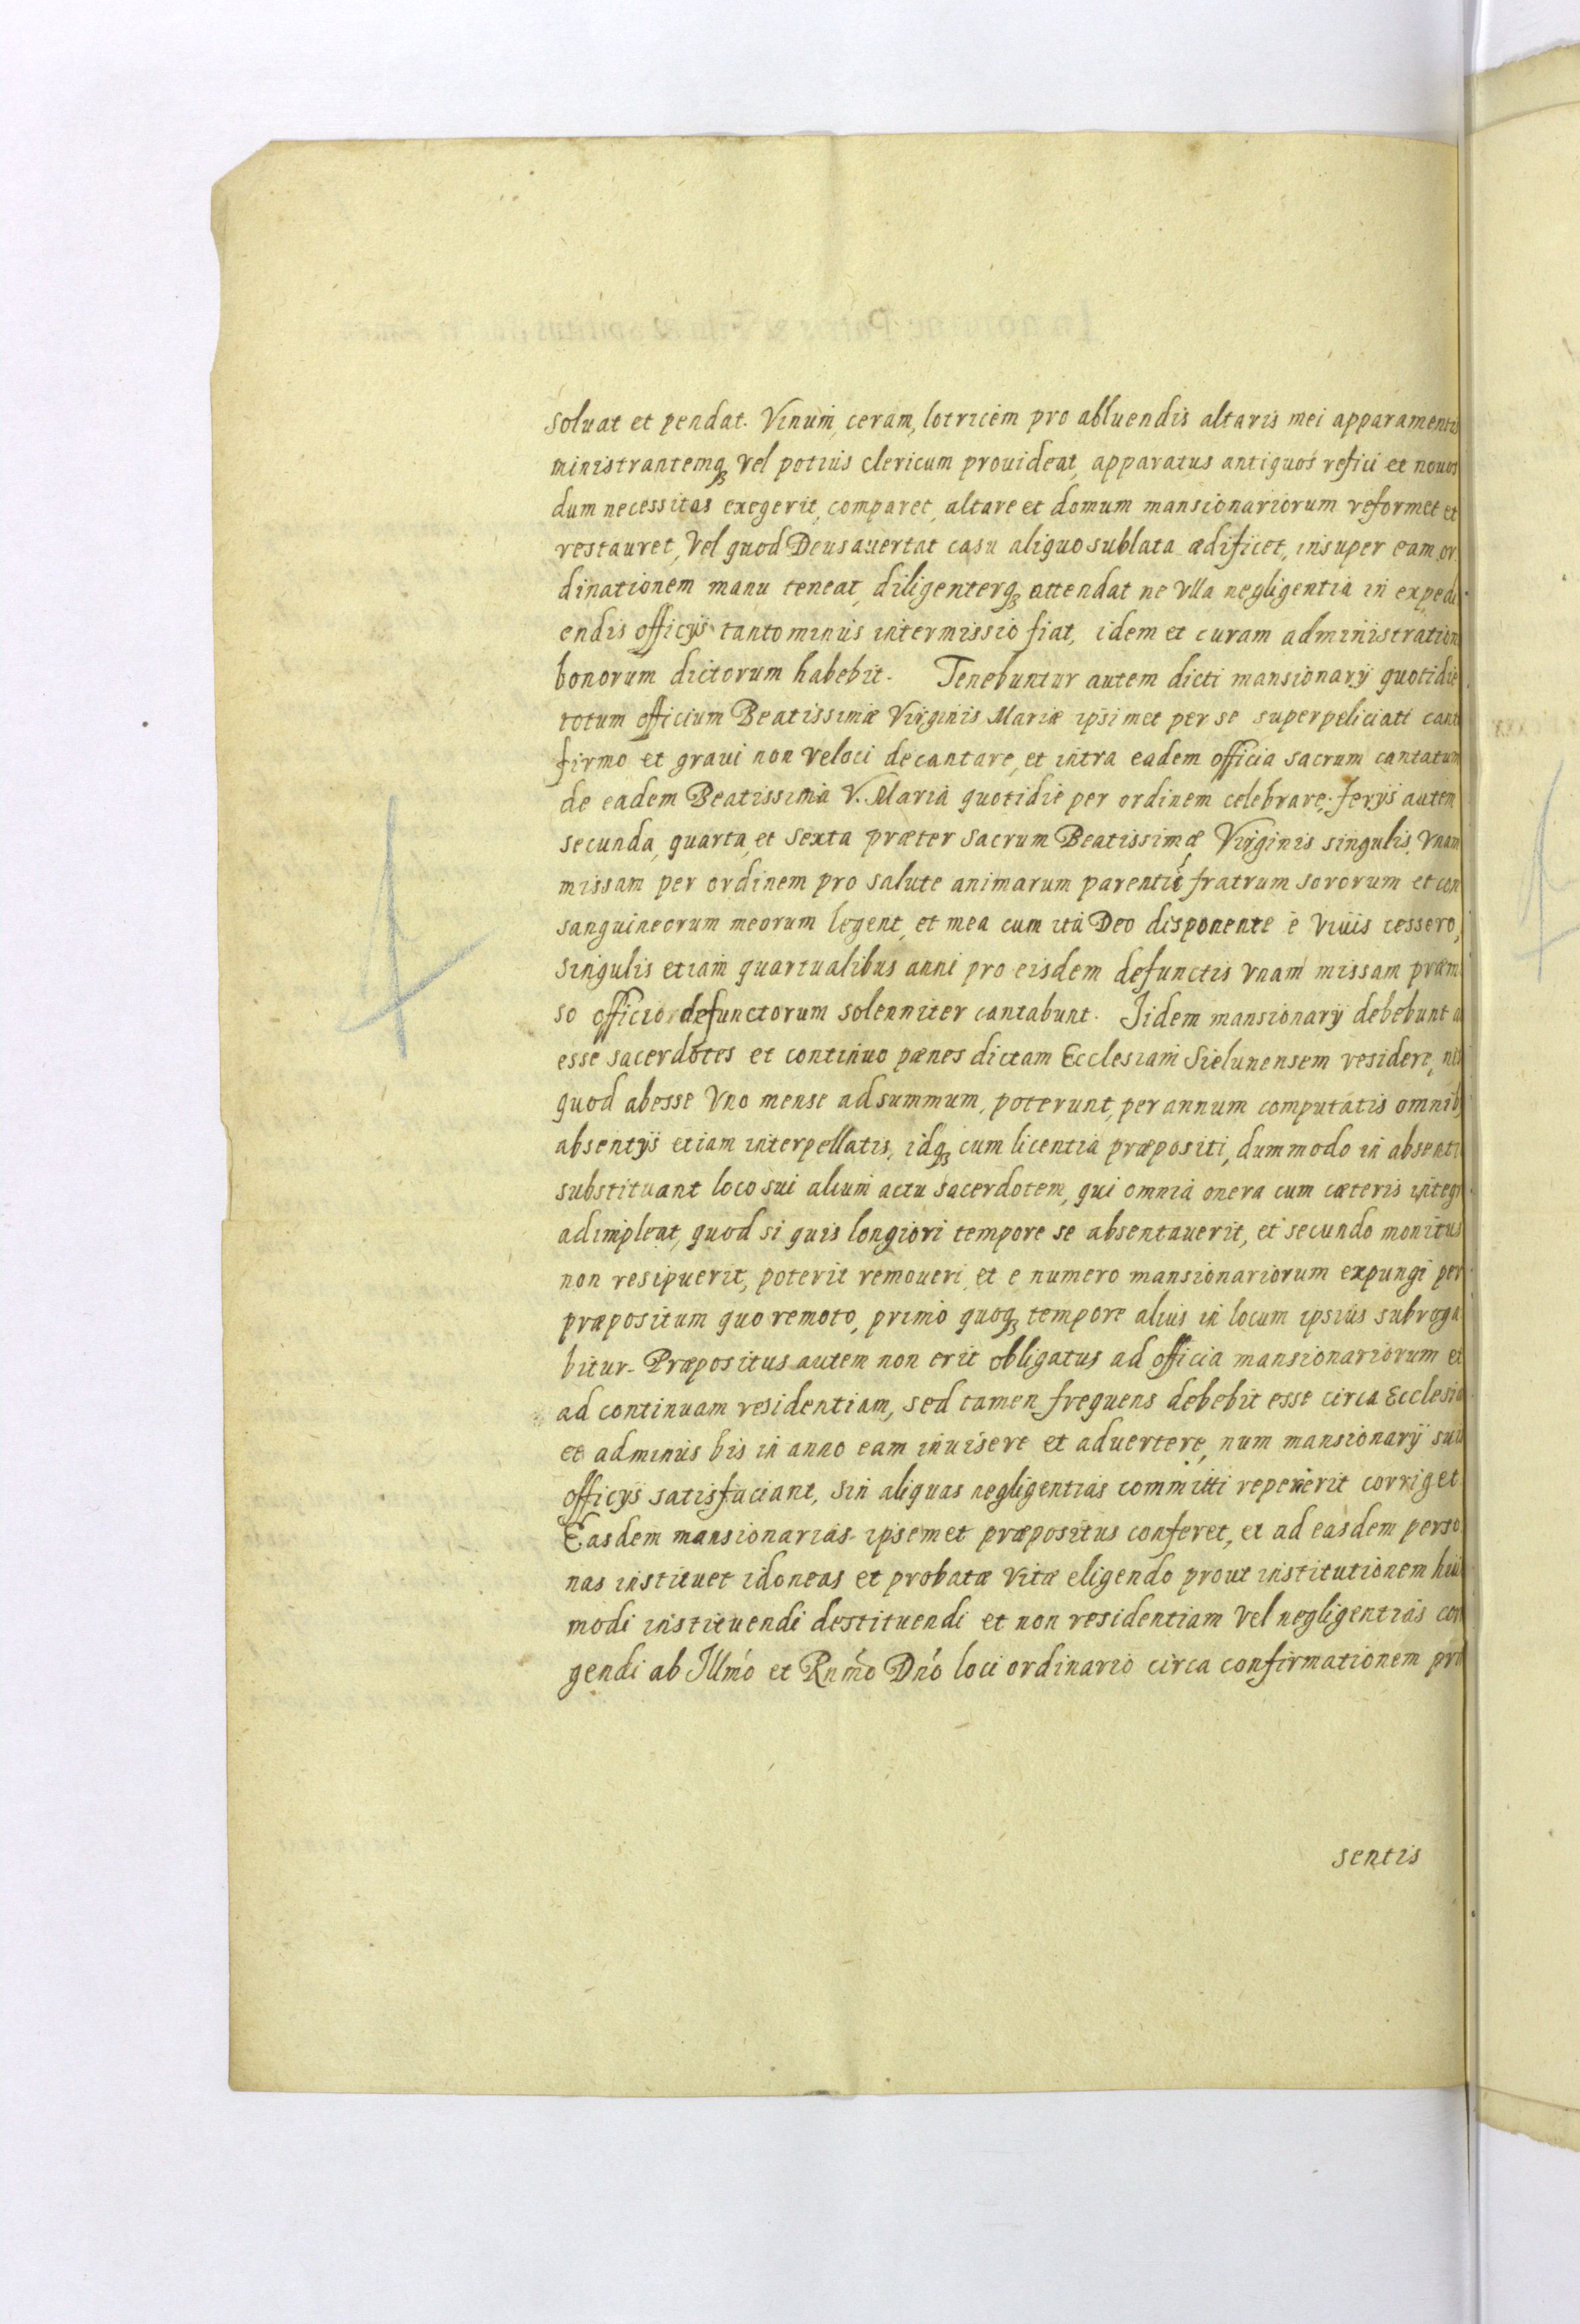 soluat et pendat. Vinum, ceram, lotricem pro abluendis altaris mei apparamentis
ministrantemq3 vel potius clericum prouideat, apparatus antiquos refici et nouos
dum necessitas exegerit, comparet, altare et domum mansionariorum reformet et
restauret, Vel quod Deus auertat casu aliquo sublata ædificet, insuper eam or
dinationem manu teneat, diligenterq3 attendat ne Vlla negligentia in expedi
endis officijs tanto minus intermissio fiat, idem et curam administration
bonorum dictorum habebit. Tenebuntur autem dicti mansionarÿ quotidie
totum officium Beatissimæ Virginis Mariæ ipsimet per se superpeliciati cant
firmo et graui non veloci decantare, et intra eadem officia sacrum cantatum
de eadem Beatissima V. Maria quotidie per ordinem celebrare. Ferÿs autem
secunda, quarta, et sexta præter sacrum Beatissimæ Virginis singulis, Vnam
missam per ordinem pro salute animarum parentū fratrum sororum et con
sanguineorum meorum legent, et mea cum ita Deo disponente è viuis cessero,
singulis etiam quartualibus anni pro eisdem defunctis vnam missam præmi
so officio defunctorum solenniter cantabunt. Jidem mansionarÿ debebunt a
esse sacerdotes et continuo pænes dictam Ecclesiam Sielunensem residere, nis
quod abesse Vno mense ad summum, poterunt, per annum computatis omnib3
absentÿs etiam interpellatis, idq3 cum licentia præpositi, dummodo in absenti
substituant loco sui alium actu sacerdotem, qui omnia onera cum cæteris integr
adimpleat, quod si quis longiori tempore se absentauerit, et secundo monitus
non resipuerit, poterit remoueri et e numero mansionariorum expungi per
præpositum quo remoto, primo quoq3 tempore alius in locum ipsius subroga
bitur. Præpositus autem non erit obligatus ad officia mansionariorum et
ad continuam residentiam, sed tamen frequens debebit esse circa Ecclesia
et adminus bis in anno eam inuisere et aduertere, num mansionarÿ suis
officÿs satisfaciant, sin aliquas negligentias committi repererit corriget
Easdem mansionarias ipsemet præpositus conferet, et ad easdem perso
nas instituet idoneas et probatæ vitæ eligendo prout institutionem hui
modi instituendi destituendi et non residentiam Vel negligentias cor
gendi ab Jllmó et Rnmó Dnó loci ordinario circa confirmationem præ
sentis